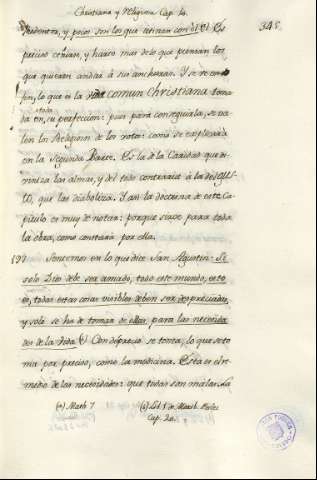 Christiana y Religiosa Cap. 14.
345.
y pocos son los que atinan con el. Es
preciso ceñirse, y hacer mas de lo que piensan los
que quieren andar à sus anchuras. Y se
que es la vida comun Christiana toma-
da en su perfeccion: pues para conseguirla, se va-
len los Religiosos de los votos: como se explicarà
en la Segunda Parte. Es la de la Caridad que di-
viniza las almas, y del todo contraria à la del gus-
to, que las diaboliza. Y asi la doctrina de este Ca-
pitulo es muy de notar: porque sirve para toda
la obra, como constarà por ella.
199 en lo que dice San Agustin: Si
solo Dios debe ser amado, todo este mundo, esto
es, todas estas cosas visibles deben ser despreciadas,
y solo se ha de tomar de ellas, para las necesida-
des de la Vida. Con desprecio se toma, lo que se to-
ma por preciso, como la medicina. Esta es el re-
medio de las necesidades: que todas son malas. La
(n) Math 7 (a) Lib. 1 de Morib. Eccles.
Cap. 20.